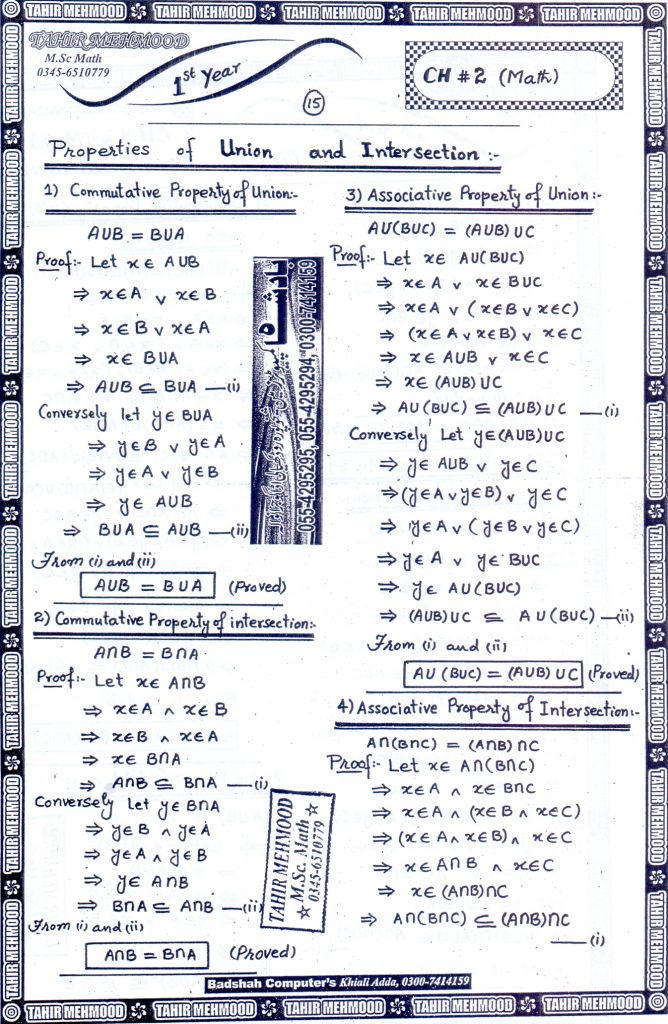 TAHIR MEHMOOD TAHIR MEHMOOD TAHIR MEHMOOD TAHIR MEHMOOD TAHIR MEHMOOD
TAHIR MEHMOOD
M.Sc Math
0345-6510779
1st Year
CH # 2 (Math)
15
Properties of Union and Intersection :-
1) Commutative Property of Union:-
A∪B = B∪A
Proof:- Let x ∈ A∪B
⇒ x∈A ∨ x∈B
⇒ x∈B ∨ x∈A
⇒ x∈ B∪A
⇒ A∪B ⊆ B∪A —(i)
Conversely let y∈ B∪A
⇒ y∈B ∨ y∈A
⇒ y∈A ∨ y∈B
⇒ y∈ A∪B
⇒ B∪A ⊆ A∪B —(ii)
From (i) and (ii)
A∪B = B∪A (Proved)
2) Commutative Property of intersection:-
A∩B = B∩A
Proof:- Let x∈ A∩B
⇒ x∈A ∧ x∈B
⇒ x∈B ∧ x∈A
⇒ x∈ B∩A
⇒ A∩B ⊆ B∩A —(i)
Conversely let y∈ B∩A
⇒ y∈B ∧ y∈A
⇒ y∈A ∧ y∈B
⇒ y∈ A∩B
⇒ B∩A ⊆ A∩B —(ii)
From (i) and (ii)
A∩B = B∩A (Proved)
3) Associative Property of Union:-
A∪(B∪C) = (A∪B)∪C
Proof:- Let x∈ A∪(B∪C)
⇒ x∈A ∨ x∈ B∪C
⇒ x∈A ∨ (x∈B ∨ x∈C)
⇒ (x∈A ∨ x∈B) ∨ x∈C
⇒ x∈ A∪B ∨ x∈C
⇒ x∈ (A∪B)∪C
⇒ A∪(B∪C) ⊆ (A∪B)∪C —(i)
Conversely Let y∈(A∪B)∪C
⇒ y∈ A∪B ∨ y∈C
⇒ (y∈A ∨ y∈B) ∨ y∈C
⇒ y∈A ∨ (y∈B ∨ y∈C)
⇒ y∈A ∨ y∈ B∪C
⇒ y∈ A∪(B∪C)
⇒ (A∪B)∪C ⊆ A∪(B∪C) —(ii)
From (i) and (ii)
A∪(B∪C) = (A∪B)∪C (Proved)
4) Associative Property of Intersection:-
A∩(B∩C) = (A∩B)∩C
Proof:- Let x∈ A∩(B∩C)
⇒ x∈A ∧ x∈ B∩C
⇒ x∈A ∧ (x∈B ∧ x∈C)
⇒ (x∈A ∧ x∈B) ∧ x∈C
⇒ x∈ A∩B ∧ x∈C
⇒ x∈ (A∩B)∩C
⇒ A∩(B∩C) ⊆ (A∩B)∩C
—(i)
055-4295295, 055-4295294, 0300-7414159
TAHIR MEHMOOD
M.Sc. Math
0345-6510779
Badshah Computer's Khiali Adda, 0300-7414159
TAHIR MEHMOOD TAHIR MEHMOOD TAHIR MEHMOOD TAHIR MEHMOOD TAHIR MEHMOOD